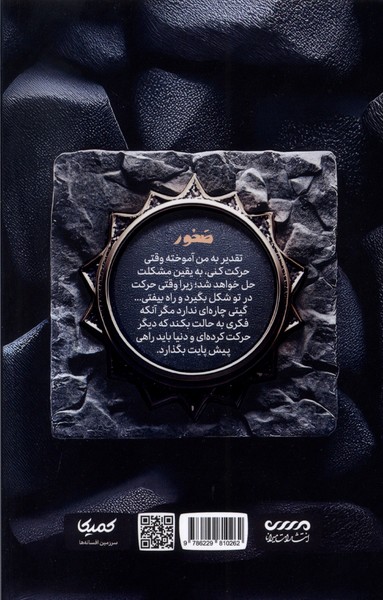 صخور
تقدیر به من آموخته وقتی
حرکت کنی، به یقین مشکلت
حل خواهد شد؛ زیرا وقتی حرکت
در تو شکل بگیرد و راه بیفتی...
گیتی چاره‌ای ندارد مگر آنکه
فکری به حالت بکند که دیگر
حرکت کرده‌ای و دنیا باید راهی
پیش پایت بگذارد.
کمیکا
سرزمین افسانه‌ها
9 786229 810262